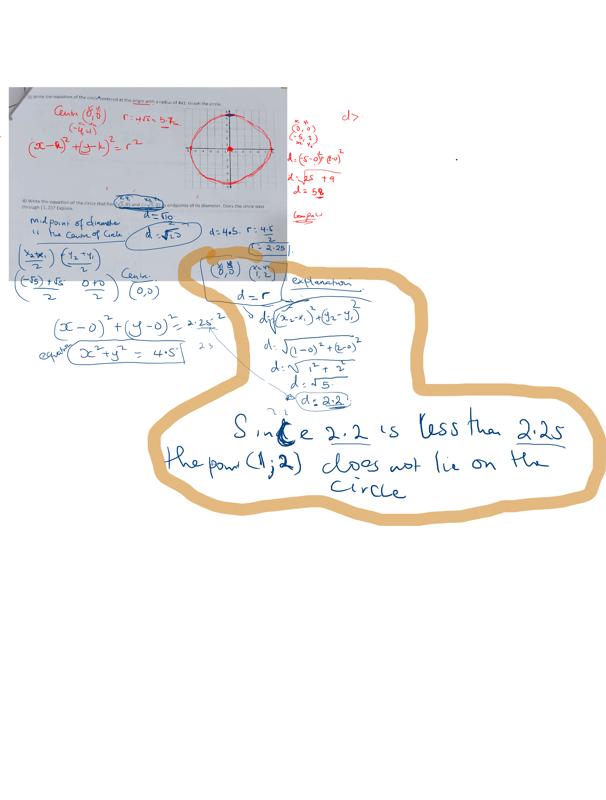 3) Write the equation of the circle centered at the origin with a radius of 4√2. Graph the circle.
Centre (0,0)
r = 4√2 = 5.7
(-4,4)
(x-h)² + (y-k)² = r²
d>
(0,0)
(-5,3)
d = (-5-0)² + (3-0)²
d = √25 + 9
d = 5.8
Compare
4) Write the equation of the circle that has endpoints of its diameter. Does the circle pass
through (1, 2)? Explain.
midpoint of diameter
is the Centre of Circle
d = √20
d = √20
d = 4.5. r = 4.5/2
r = 2.25
(x₂+x₁/2) (y₂+y₁/2)
((-√5)+√5/2 0+0/2) Centre (0,0)
(0,0) (1,2)
d = r
explanation
(x-0)² + (y-0)² = 2.25²
equation x² + y² = 4.5
2.5
d = √(x₂-x₁)² + (y₂-y₁)²
d = √(1-0)² + (2-0)²
d = √1² + 2²
d = √5
d = 2.2
Since 2.2 is less than 2.25
the point (1;2) does not lie on the
circle